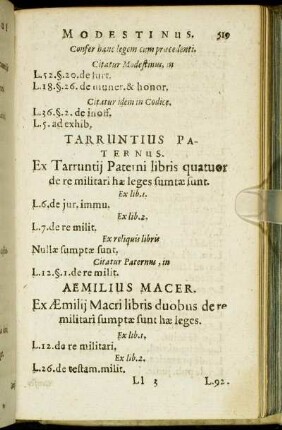 MODESTINUS. 519
Confer hanc legem cum præcedenti.
Citatur Modestinus, in
L.52.§.20. de furt.
L.18.§.26. de muner. & honor.
Citatur idem in Codice.
L.36.§.2. de inoff.
L.5. ad exhib,
TARRUNTIUS PA-
TERNUS.
Ex Tarruntij Paterni libris quatuor
de re militari hæ leges sumtæ sunt.
Ex lib.1.
L.6. de jur. immu.
Ex lib.2.
L.7. de re milit.
Ex reliquis libris
Nullæ sumptæ sunt,
Citatur Paternus, in
L.12.§.1. de re milit.
AEMILIUS MACER.
Ex Æmilij Macri libris duobus de re
militari sumptæ sunt hæ leges.
Ex lib.1.
L.12. de re militari,
Ex lib.2.
L.26. de testam. milit.
Ll 3 L.92.